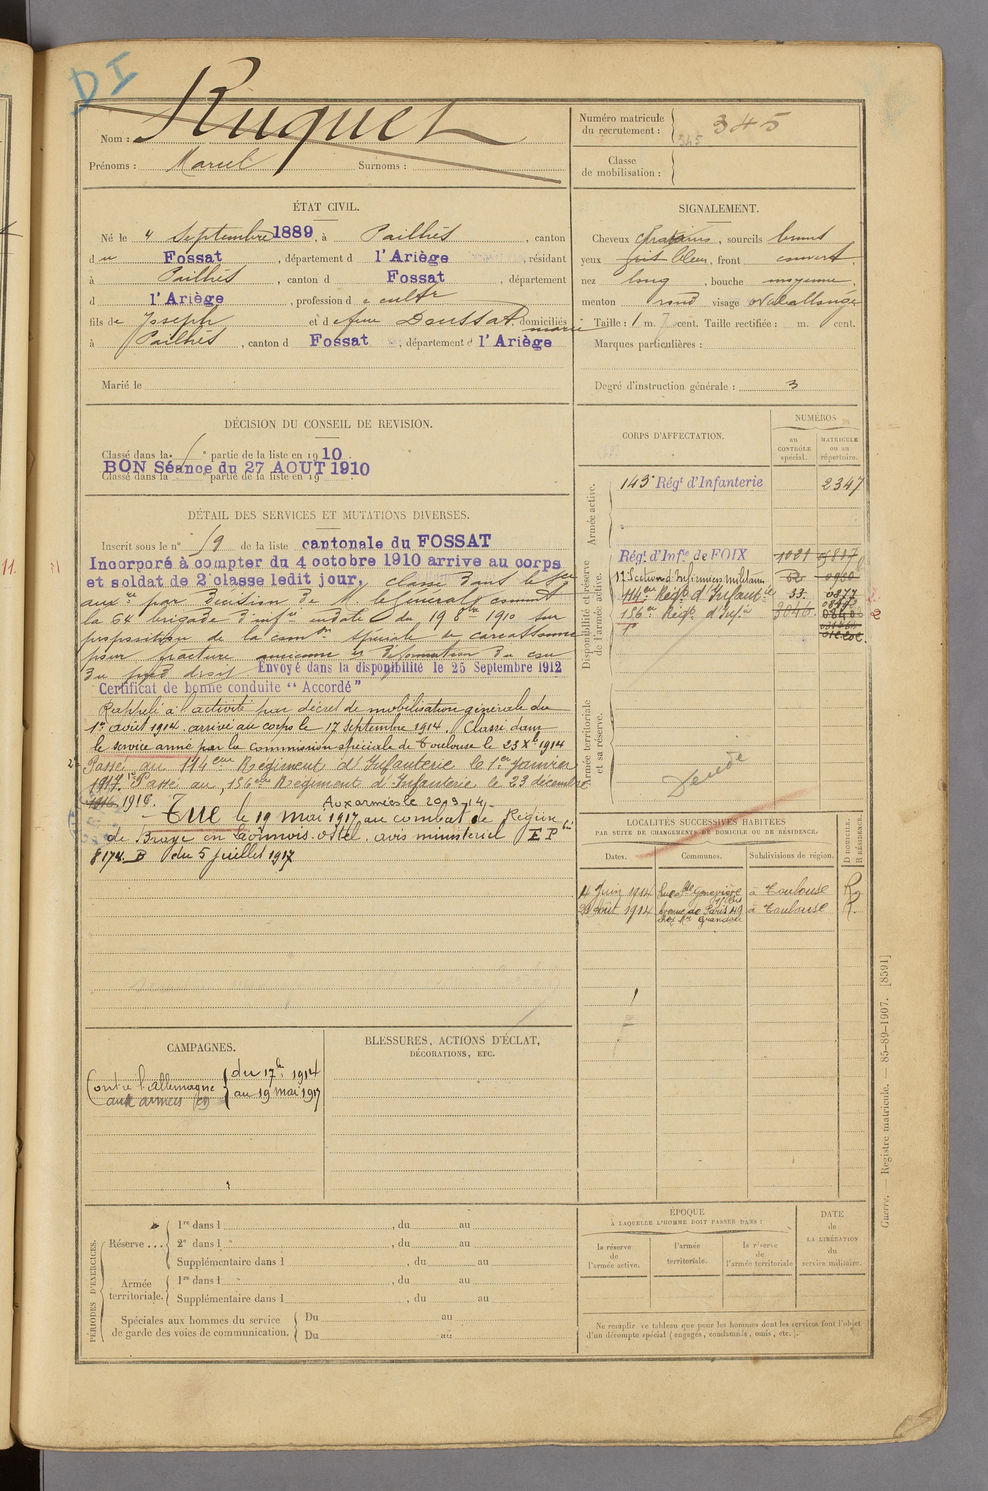 DI
Nom : Ruquet
Prénoms : Marcel Surnoms :
Numéro matricule
du recrutement : 345
345
Classe
de mobilisation :
ÉTAT CIVIL.
Né le 4 Septembre 1889, à Pailhès, canton
du Fossat, département d l'Ariège, résidant
à Pailhès, canton d Fossat, département
d l'Ariège, profession d cultr
fils de Joseph et d Doussat domiciliés
à Pailhès, canton d Fossat, département d l'Ariège
Marié le
SIGNALEMENT.
Cheveux chatains, sourcils bruns
yeux bleu, front couvert
nez long, bouche moyenne
menton rond visage
Taille : 1 m. 7 cent. Taille rectifiée : m. cent.
Marques particulières :
Degré d'instruction générale : 3
DÉCISION DU CONSEIL DE REVISION.
Classé dans la partie de la liste en 1910.
BON Séance du 27 AOUT 1910
Classé dans la partie de la liste en 19
DÉTAIL DES SERVICES ET MUTATIONS DIVERSES.
Inscrit sous le n° 19 de la liste cantonale du FOSSAT
Incorporé à compter du 4 octobre 1910 arrive au corps
et soldat de 2e classe ledit jour, classé dans le sce
auxre par décision de M. le Général commt
la 64e brigade d'infie en date du 19 8bre 1910 sur
proposition de la comon spéciale de Carcassonne
pour fracture ancienne et déformation du cou
du pied droit Envoyé dans la disponibilité le 25 Septembre 1912
Certificat de bonne conduite "Accordé"
Rappelé à l'activité par décret de mobilisation générale du
1er août 1914. arrivé au corps le 17 Septembre 1914. Classé dans
le service armé par la Commission spéciale de Toulouse le 23 Xbre 1914
2° Passé au 114eme Régiment d'Infanterie le 1er janvier
1917. 1° Passé au 156eme Régiment d'Infanterie le 23 décembre
1916 1916. Aux armées le
Tué le 19 mai 1917 au combat de Région
de Braye en Laonnois-Ostel, avis ministériel EP
8174 B du 5 juillet 1917
CORPS D'AFFECTATION.
NUMÉROS
au
CONTRÔLE
spécial.
MATRICULE
ou au
répertoire.
Armée active.
143e Régt d'Infanterie 2347
Disponibilité et réserve
de l'armée active.
Régt d'Infie de FOIX
17 Section d'Infirmiers militaires
114e Régt d'Infanterie 33. 0877
156e Régt d'Infie
Armée territoriale
et sa réserve.
LOCALITÉS SUCCESSIVES HABITÉES
PAR SUITE DE CHANGEMENTS DE DOMICILE OU DE RÉSIDENCE.
Dates. Communes. Subdivisions de région.
D DOMICILE.
R RÉSIDENCE.
14 Juin 1914 Rue Ste Geneviève à Toulouse R.
août 1914 Avenue de Paris 49 à Toulouse R.
chez Mr
CAMPAGNES.
Contre l'Allemagne du 17 7bre 1914
aux armées au 19 mai 1917
BLESSURES, ACTIONS D'ÉCLAT,
DÉCORATIONS, ETC.
PÉRIODES D'EXERCICES.
Réserve ... 1re dans l , du au
2e dans l , du au
Supplémentaire dans l , du au
Armée
territoriale. 1re dans l , du au
Supplémentaire dans l , du au
Spéciales aux hommes du service
de garde des voies de communication. Du au
Du au
ÉPOQUE
À LAQUELLE L'HOMME DOIT PASSER DANS :
la réserve
de
l'armée active.
l'armée
territoriale.
la réserve
de
l'armée territoriale
DATE
de
LA LIBÉRATION
du
service militaire.
Ne remplir ce tableau que pour les hommes dont les services font l'objet
d'un décompte spécial (engagés, condamnés, omis, etc.).
Guerre. — Registre matricule. — 85-89-1907. [8591]